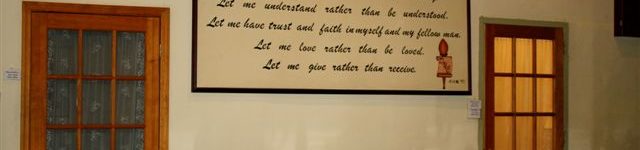 Let me understand rather than be understood.
Let me have trust and faith in myself and my fellow man.
Let me love rather than be loved.
Let me give rather than receive.